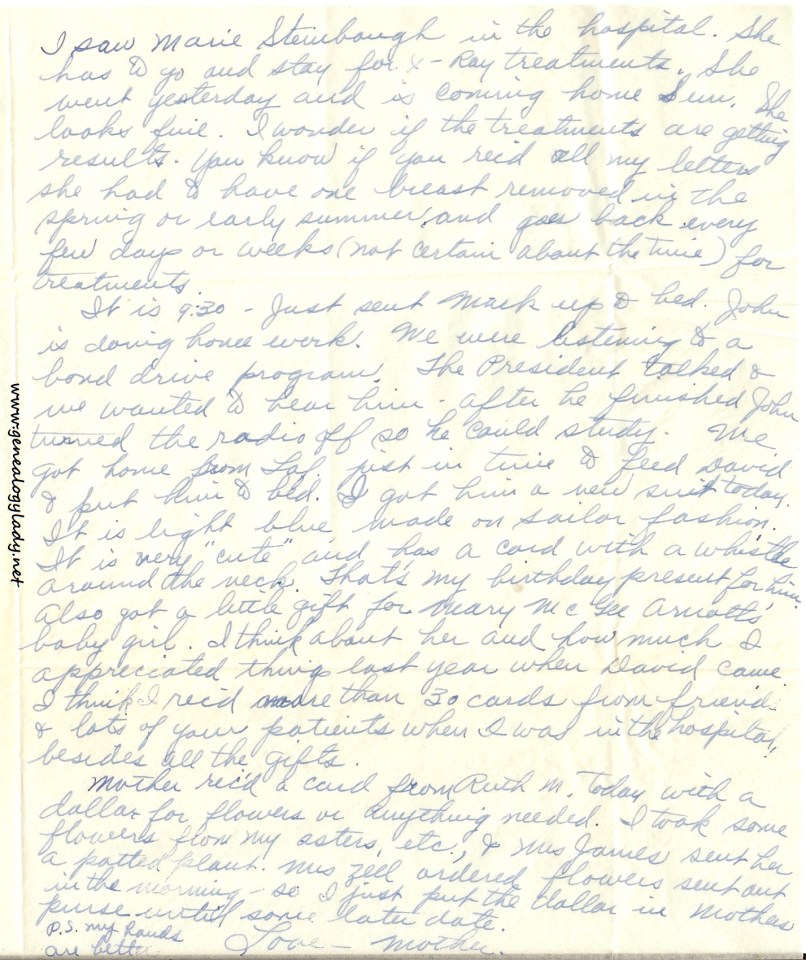 I saw Marie Steinbaugh in the hospital. She
has to go and stay for X-Ray treatments. She
went yesterday and is coming home Sun. She
looks fine. I wonder if the treatments are getting
results. You know if you rec'd all my letters
she had to have one breast removed in the
spring or early summer, and goes back every
few days or weeks (not certain about the time) for
treatments.
It is 9:30 - Just sent Mark up to bed. John
is doing home work. We were listening to a
bond drive program. The President talked &
we wanted to hear him - after he finished John
turned the radio off so he could study. We
got home from Laf. just in time to feed David
& put him to bed. I got him a new suit today.
It is light blue, made on sailor fashion.
It is very "cute" and has a cord with a whistle
around the neck. That's my birthday present for him.
Also got a little gift for Mary McGee Arnotts'
baby girl. I think about her and how much I
appreciated things last year when David came
I think I rec'd more than 30 cards from friends
& lots of your patients when I was in the hospital,
besides all the gifts.
Mother rec'd a card from Ruth M. Today with a
dollar for flowers or anything needed. I took some
flowers from my sisters, etc., & Mrs James sent her
a potted plant. Mrs Zell ordered flowers sent out
in the morning - so I just put the dollar in Mothers
purse until some later date.
Love - Mother.
P.S. My hands
are better
www.genealogylady.net